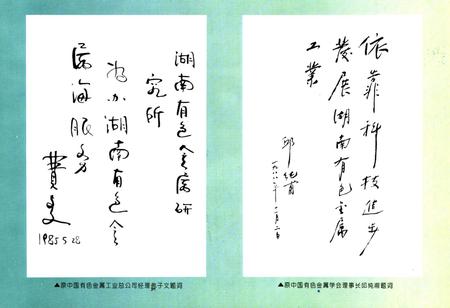 湖南有色金属研
究所
湖南有色金
属 服务
費子文
1985 5 28
▲原中国有色金属工业总公司经理费子文题词
依靠科技進步
發展湖南有色金属
工業
邱纯甫
一九八八年 月二日
▲原中国有色金属学会理事长邱纯甫题词